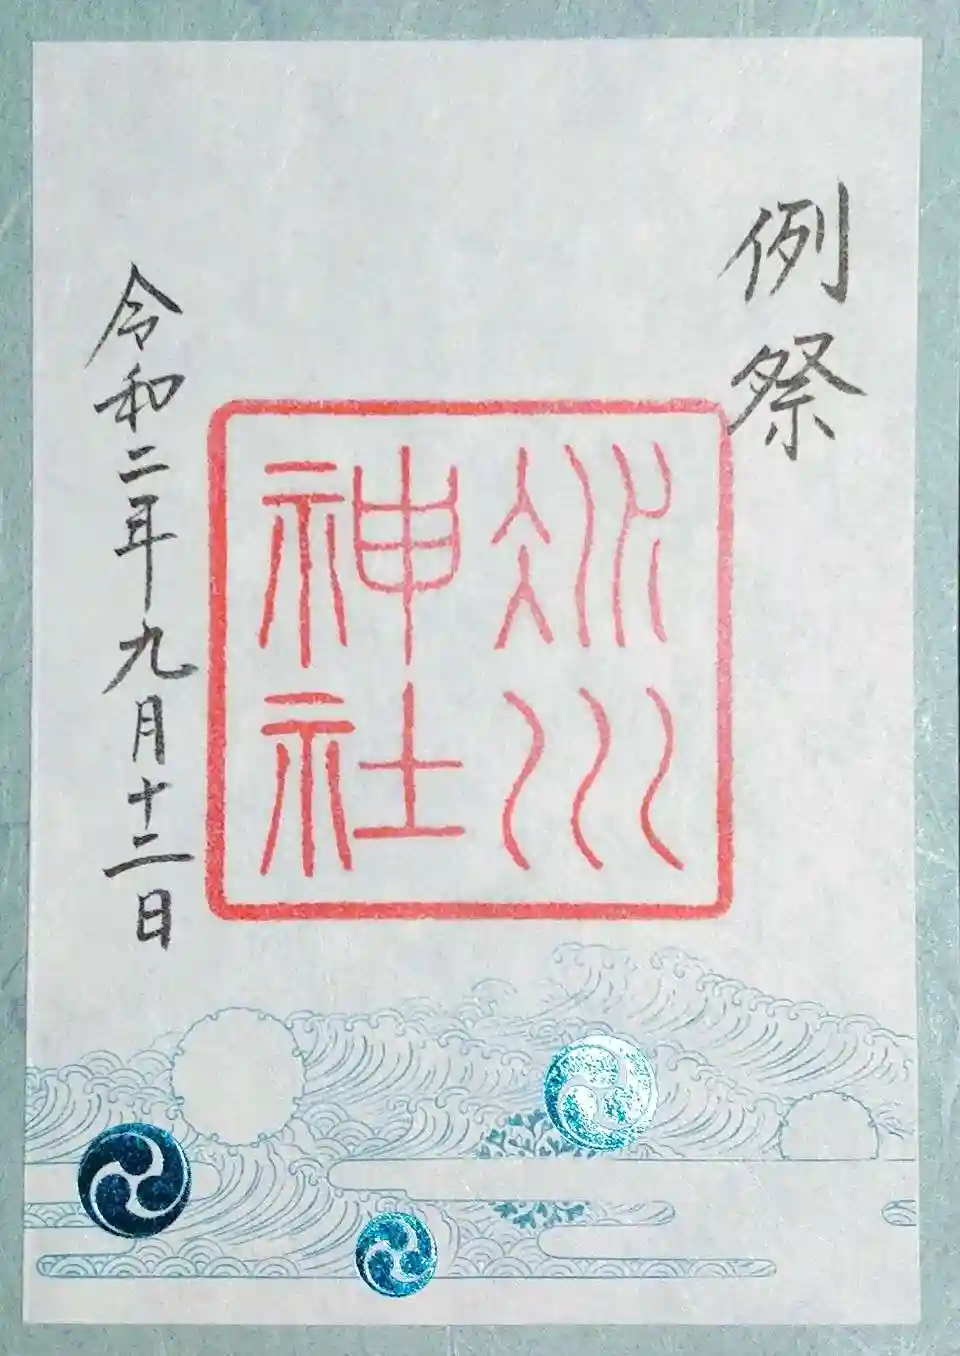 例祭
冰川
神社
令和二年九月十二日